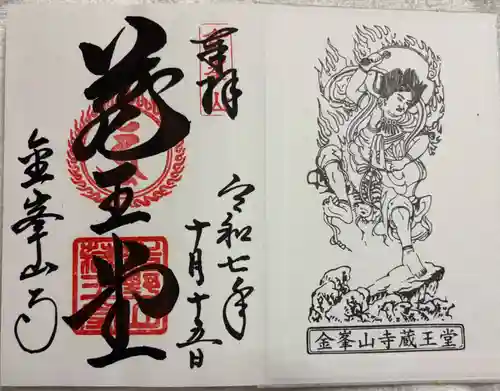 奉拝
蔵王堂
令和七年
十月十五日
金峯山寺
金峯山寺蔵王堂